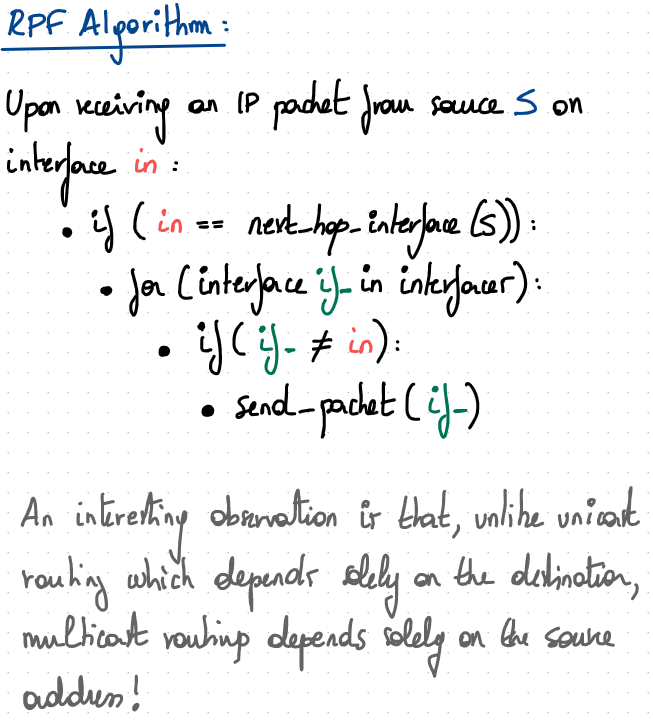 RPF Algorithm:
Upon receiving an IP packet from source S on
interface in:
• if (in == next_hop_interface(S)):
• for (interface if_ in interfaces):
• if (if_ ≠ in):
• send_packet(if_)
An interesting observation is that, unlike unicast
routing which depends solely on the destination,
multicast routing depends solely on the source
address!